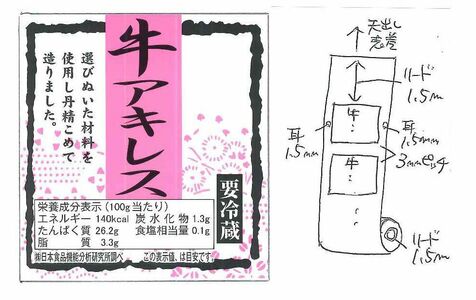 牛アキレス
選びぬいた材料を
使用し丹精こめて
造りました。
要冷蔵
栄養成分表示(100g当たり)
エネルギー 140kcal 炭水化物 1.3g
たんぱく質 26.2g 食塩相当量 0.1g
脂質 3.3g
㈱日本食品機能分析研究所調べ この表示値は、目安です。
天出し
リード
1.5m
牛
⋮
耳
1.5mm
耳
1.5mm
3mmピッチ
牛
⋮
リード
1.5m